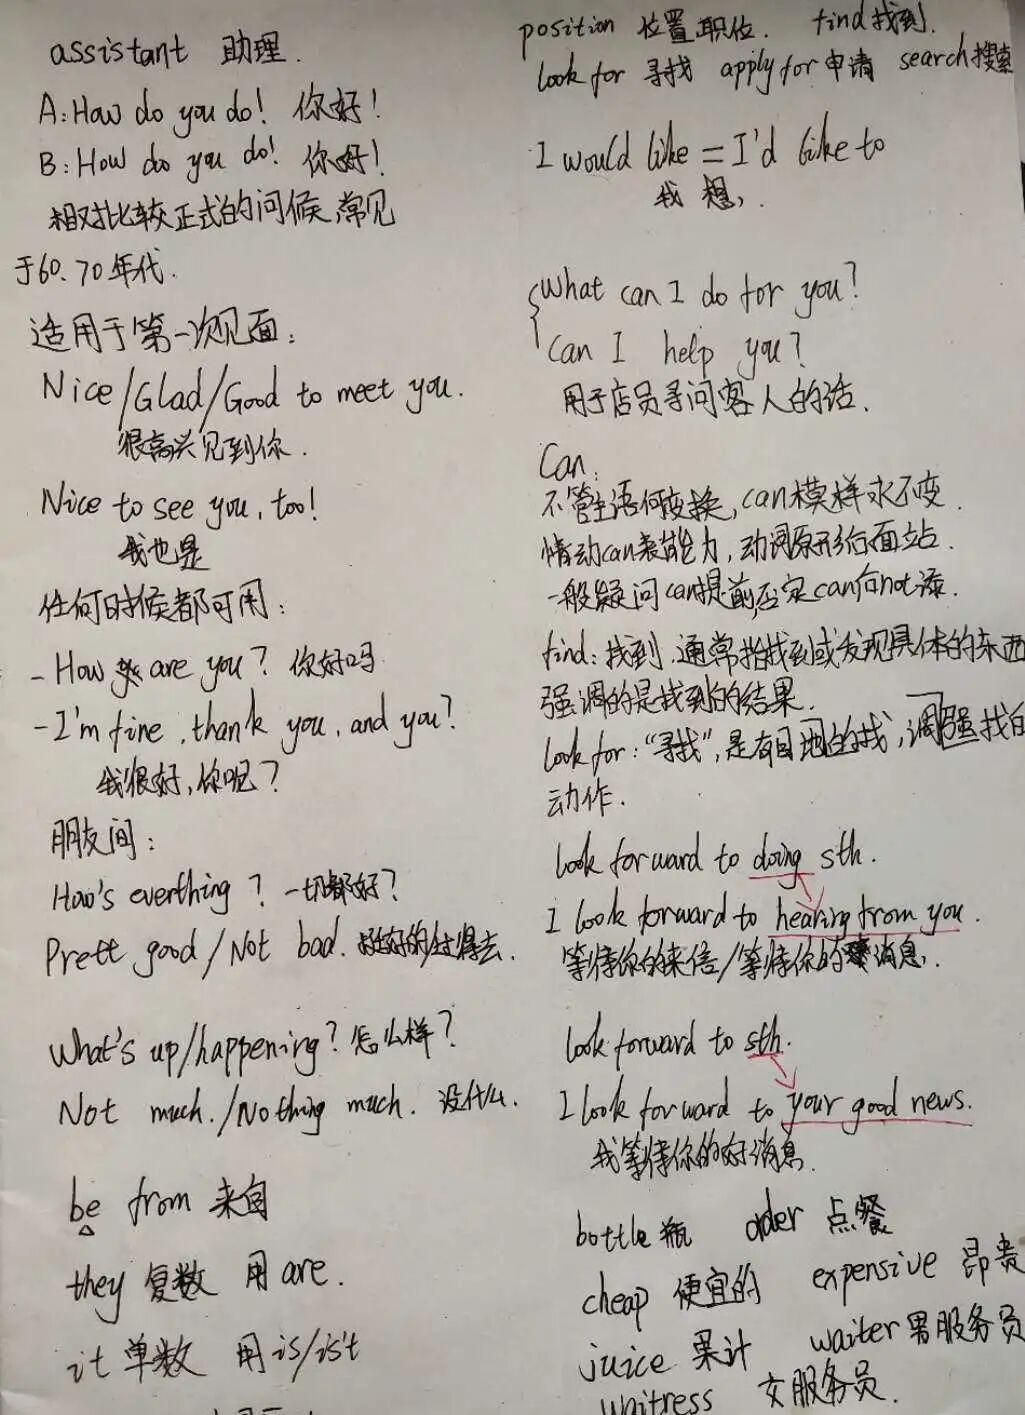 assistant 助理.
A: How do you do! 你好!
B: How do you do! 你好!
相对比较正式的问候,常见
于60、70年代.
适用于第一次见面:
Nice/Glad/Good to meet you.
很高兴见到你.
Nice to see you, too!
我也是
任何时候都可用:
- How are you? 你好吗
- I'm fine, thank you, and you?
我很好,你呢?
朋友间:
How's everthing? 一切都好?
Prett good/Not bad. 挺好的/过得去.
What's up/happening? 怎么样?
Not much./Nothing much. 没什么.
be from 来自
they 复数 用are.
it 单数 用is/is't
position 位置,职位. find找到.
look for 寻找 apply for申请 search搜索
I would like = I'd like to
我想,.
What can I do for you?
Can I help you?
用于店员寻问客人的话.
Can:
不管主语何变换,can模样永不变.
情动can表能力,动词原形后面站.
一般疑问can提前,否定can向not添.
find: 找到.通常指找到或发现具体的东西
强调的是找到的结果.
look for: "寻找",是有目地的找,调强找的
动作.
look forward to doing sth.
I look forward to hearing from you.
等待你的来信/等待你的消息.
look forward to sth.
I look forward to your good news.
我等待你的好消息.
bottle 瓶 order 点餐
cheap 便宜的 expensive 昂贵
juice 果计 waiter 男服务员
waitress 女服务员.